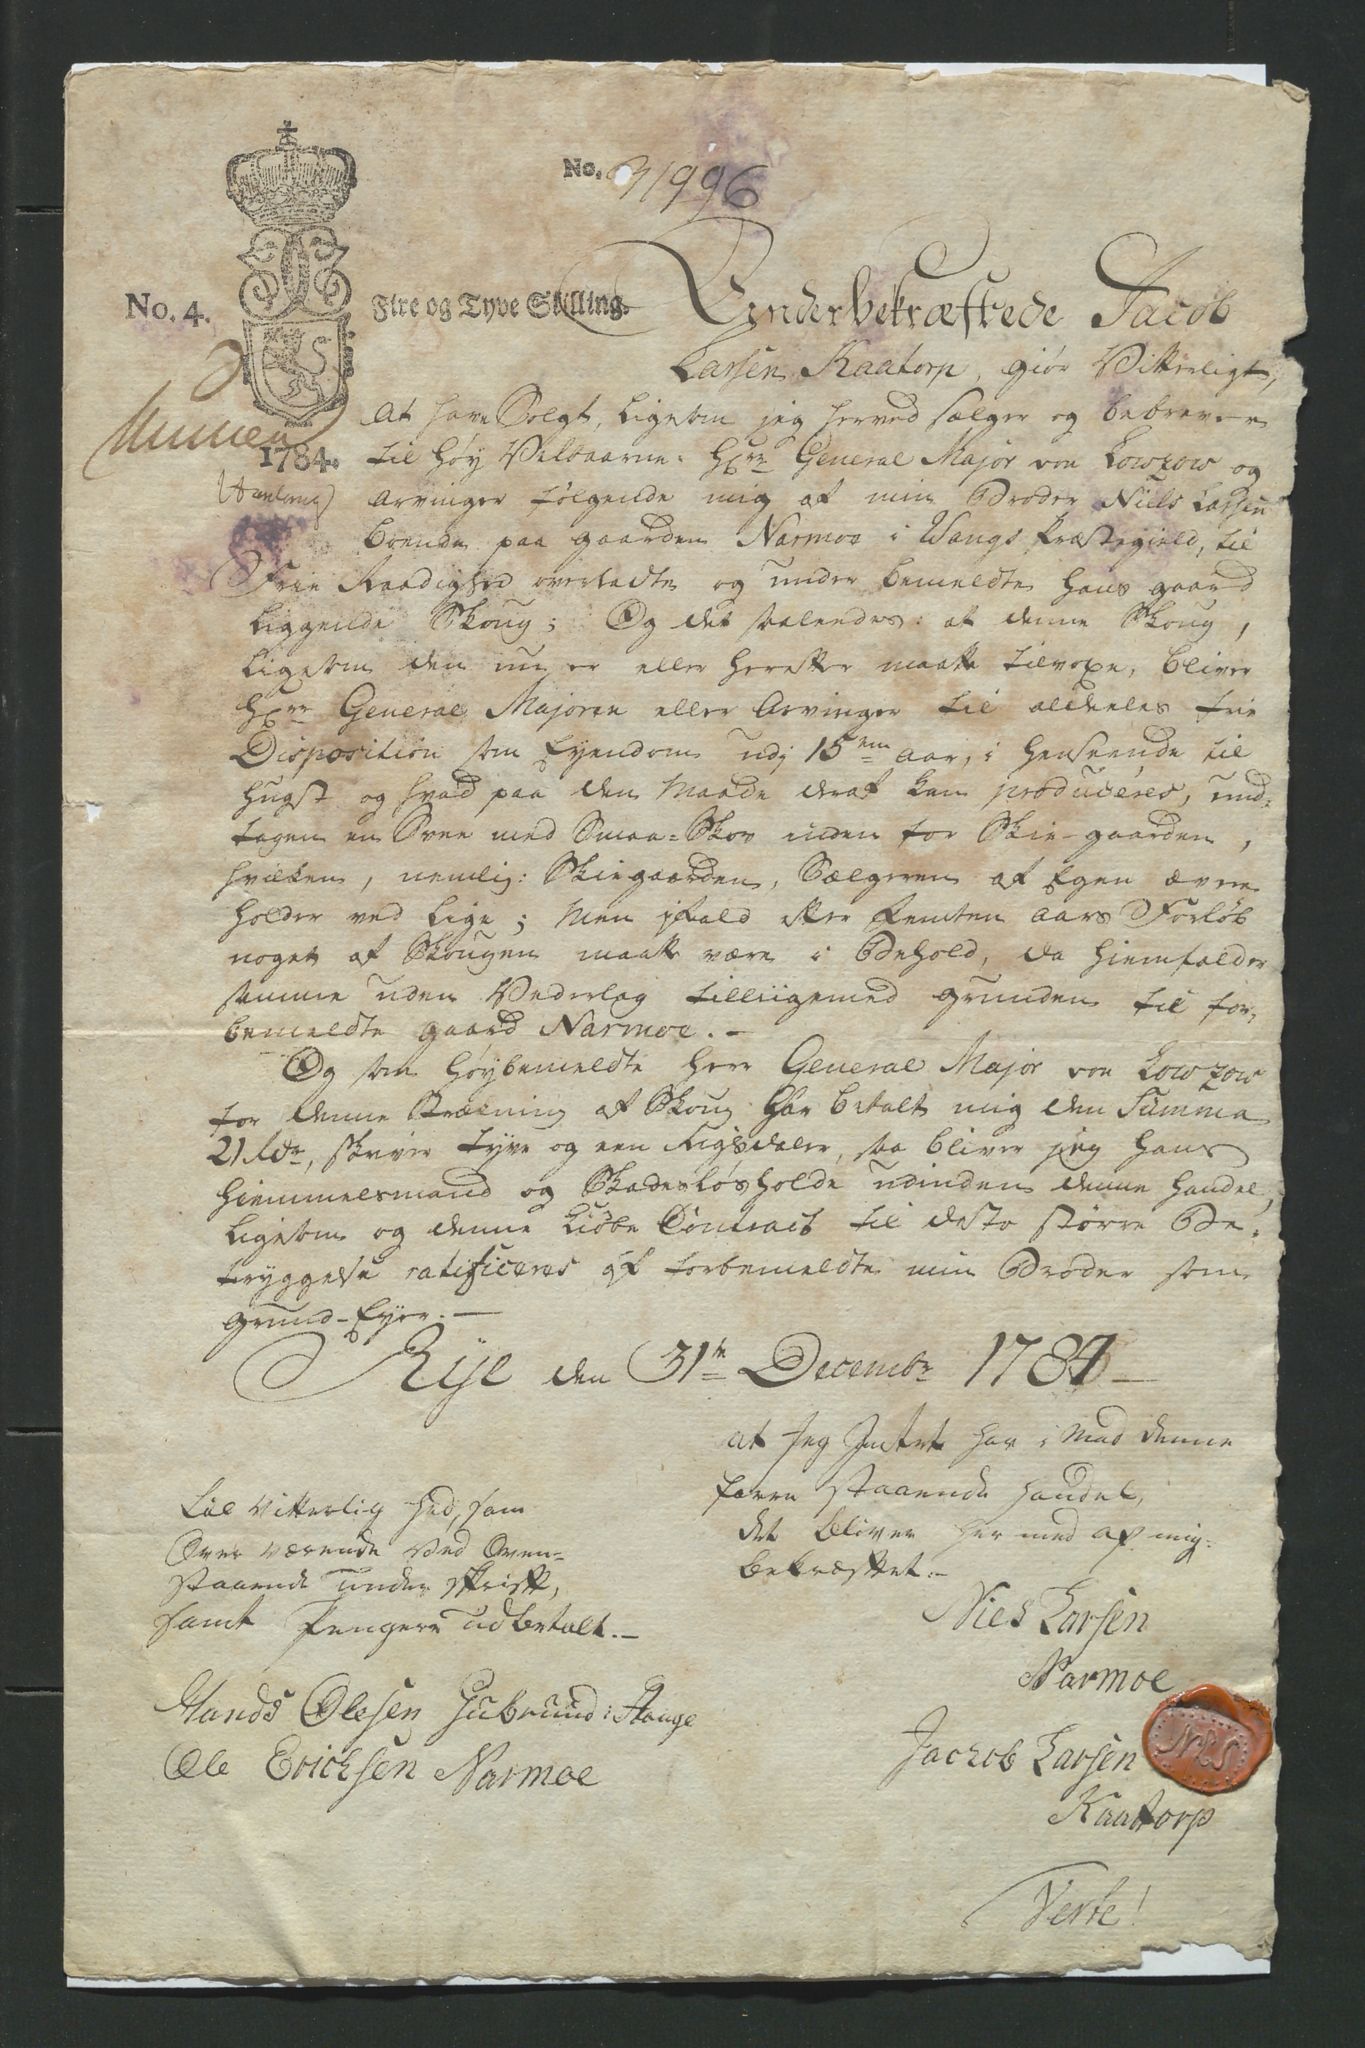 No. 31996
No. 4.
Fire og Tyve Skilling.
1784.
Underbekræftede Jacob
Larsen Kaatorp, giör Vitterligt,
At have Solgt, ligesom jeg herved sælger og bebrever
til Høy Velbaarne Herr General Major von Lowzow og
Arvinger følgende mig af min Broder Niels Larsen
boende paa gaarden Narmoe i Wangs Præstegield, til
Frie Raadighed overladte og under bemeldte hans gaard
liggende Skoug; Og det saaledes: at denne Skoug,
ligesom den nu er eller herefter maatte tilvoxe, bliver
Herr General Majoren eller Arvinger til aldeeles frie
Disposition som Eyendom udj 15ten aar, i henseende til
hugst og hvad paa den Maade deraf kan produceres, und-
tagen en Svee med Smaa-Skov uden for Skie-gaarden,
hvilken, nemlig: Skiegaarden, Sælgeren af Egen ævne
holder ved lige; Men ifald efter femten aars Forløb
noget af Skougen maatte være i Behold, da hiemfalder
samme uden Vederlag tilliigemed grunden til for-
bemeldte gaard Narmoe.-
Og som høybemeldte Herr General Major von Lowzow
for denne Strækning af Skoug har betalt mig den Summa
21 Rdr, skriver tyve og een Rigsdaler, saa bliver jeg hans
hiemmelsmand og Skadesløsholde udinden denne handel,
ligesom og denne Kiøbe Contract til desto større Be-
tryggelse ratificeres af forbemeldte min Broder som
grund-Eyer.-
Rye den 31te Decembr 1784
At Jeg Intet har i Mod denne
forre staaende handel,
det bliver her med af mig
bekræftet.-
Niels Larsen
Narmoe
Jachob Larsen
Kaatorp
NLS
Til Vitterlig hed, som
Over værende ved Oven-
staaende under skrift,
samt Pengene udbetalt.-
Hands Olesen Gubrund: Stange
Ole Erichsen Narmoe
Verte!